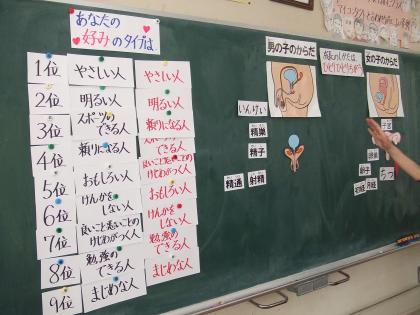 あなたの
好みのタイプは
1位 やさしい人 やさしい人
2位 明るい人 明るい人
3位 スポーツのできる人 頼りになる人
4位 頼りになる人 スポーツのできる人
5位 おもしろい人 良いこと悪いことのけじめがつく人
6位 けんかをしない人 おもしろい人
7位 良いこと悪いことのけじめがつく人 けんかをしない人
8位 勉強のできる人 勉強のできる人
9位 まじめな人 まじめな人
男の子のからだ
ひとりひとりちがう
女の子のからだ
いんけい
精巣
精子
精通 射精
子宮
卵巣
卵子
初経 月経
ちつ